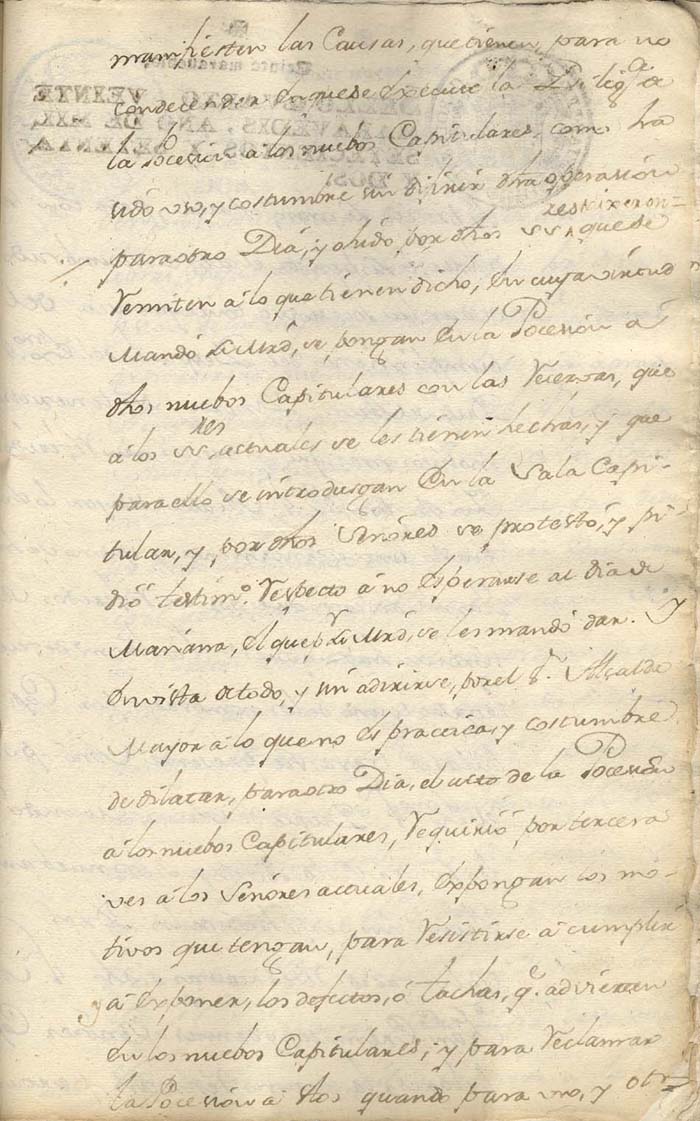 manifiesten las Causas, que tienen, para no
condecender en que se execute la Dilig.a de
la Poceción a los nuebos Capitulares, como ha
sido uso, y costumbre sin diferir dha operasión
para otro Día, y ohído por dhos SS.res dixeron que se
Remiten á lo que tienen dicho, En cuya virtud
Mandó su Mrd, se pongan En la Poceción á
dhos nuebos Capitulares con las Recervas, que
á los SS.res actuales se les tienen hechas, y que
para ello se introdusgan En la Sala Capi-
tular, y por dhos Señores se protestó, y pi-
dió testim.o Respecto á no Esperarse al dia de
Mañana, el que p.r su Mrd, se les mandó dar. Y
En vista de todo, y sin adirirse, por el S.r Alcalde
Mayor a lo que no es practica, y costumbre
de dilatar, para otro Dia, el acto de la Poceción
á los nuebos Capitulares, Requirió por tercera
ves á los Señores actuales, Expongan los mó-
tivos que tengan, para Resistirse á cumplir
y á Exponer, los defectos, ó tachas, q.e advieran
En los nuebos Capitulares; y para Reclamar
la Poceción á dhos quando para uno, y otro
VEINTE